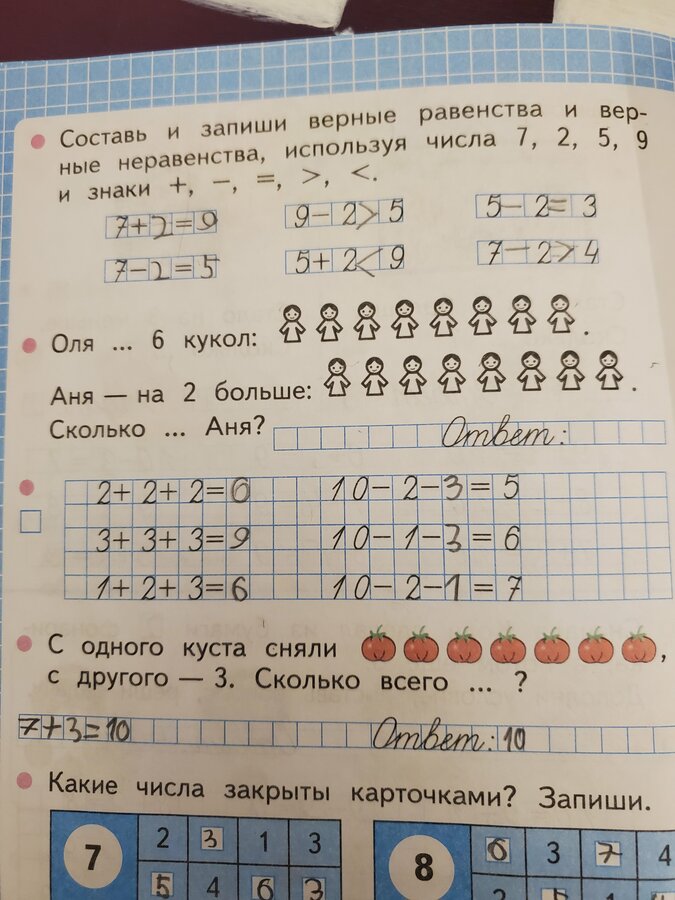 Составь и запиши верные равенства и вер-
ные неравенства, используя числа 7, 2, 5, 9
и знаки +, −, =, >, <.
7+2=9 9−2>5 5−2=3
7−2=5 5+2<9 7−2>4
Оля ... 6 кукол:
Аня — на 2 больше:
Сколько ... Аня? Ответ:
2+2+2=6 10−2−3=5
3+3+3=9 10−1−3=6
1+2+3=6 10−2−1=7
С одного куста сняли ,
с другого — 3. Сколько всего ... ?
7+3=10 Ответ: 10
Какие числа закрыты карточками? Запиши.
7 2 3 1 3 8 6 3 7 4
5 4 6 3